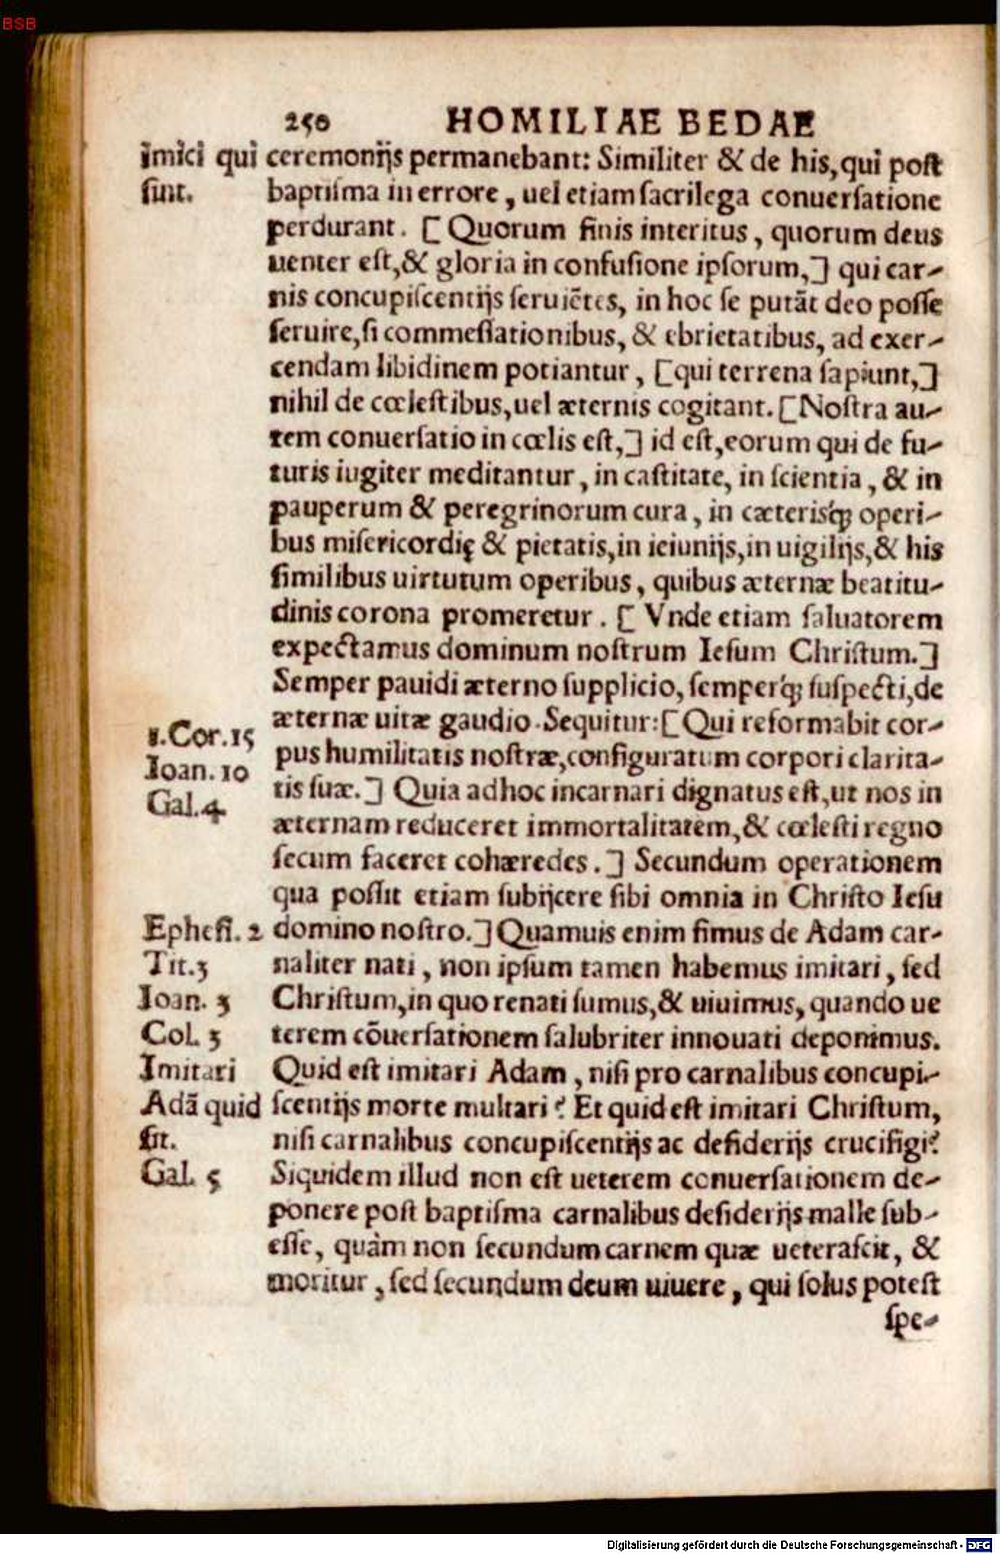 BSB
250 HOMILIAE BEDAE
imici qui ceremonijs permanebant: Similiter & de his, qui post
sint. baptisma in errore, uel etiam sacrilega conuersatione
perdurant. [Quorum finis interitus, quorum deus
uenter est, & gloria in confusione ipsorum,] qui car-
nis concupiscentijs seruiētes, in hoc se putāt deo posse
seruire, si commessationibus, & ebrietatibus, ad exer-
cendam libidinem potiantur, [qui terrena sapiunt,]
nihil de cœlestibus, uel æternis cogitant. [Nostra au-
tem conuersatio in cœlis est,] id est, eorum qui de fu-
turis iugiter meditantur, in castitate, in scientia, & in
pauperum & peregrinorum cura, in cæterisq́; operi-
bus misericordię & pietatis, in ieiunijs, in uigilijs, & his
similibus uirtutum operibus, quibus æternæ beatitu-
dinis corona promeretur. [Vnde etiam saluatorem
expectamus dominum nostrum Iesum Christum.]
Semper pauidi æterno supplicio, semperq́; suspecti, de
æternæ uitæ gaudio. Sequitur: [Qui reformabit cor-
1. Cor. 15 pus humilitatis nostræ, configuratum corpori clarita-
Ioan. 10 tis suæ.] Quia adhoc incarnari dignatus est, ut nos in
Gal. 4 æternam reduceret immortalitatem, & cœlesti regno
secum faceret cohæredes.] Secundum operationem
qua possit etiam subijcere sibi omnia in Christo Iesu
Ephesi. 2 domino nostro.] Quamuis enim simus de Adam car-
Tit. 3 naliter nati, non ipsum tamen habemus imitari, sed
Ioan. 3 Christum, in quo renati sumus, & uiuimus, quando ue
Col. 3 terem cōuersationem salubriter innouati deponimus.
Imitari Quid est imitari Adam, nisi pro carnalibus concupi-
Adā quid scentijs morte multari? Et quid est imitari Christum,
sit. nisi carnalibus concupiscentijs ac desiderijs crucifigi?
Gal. 5 Siquidem illud non est ueterem conuersationem de-
ponere post baptisma carnalibus desiderijs malle sub-
esse, quàm non secundum carnem quæ ueterascit, &
moritur, sed secundum deum uiuere, qui solus potest
spe-
Digitalisierung gefördert durch die Deutsche Forschungsgemeinschaft - DFG